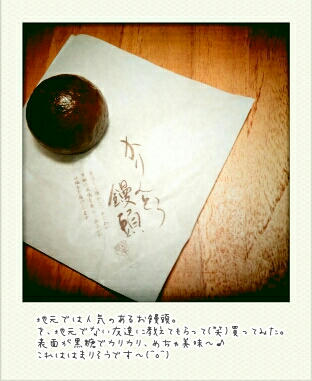 かりんとう
饅頭
地元では人気のあるお饅頭。
で、地元でない友達に教えてもらって(笑)買ってみた。
表面が黒糖でカリカリ、めちゃ美味～♪
これははまりそうです～(^o^)